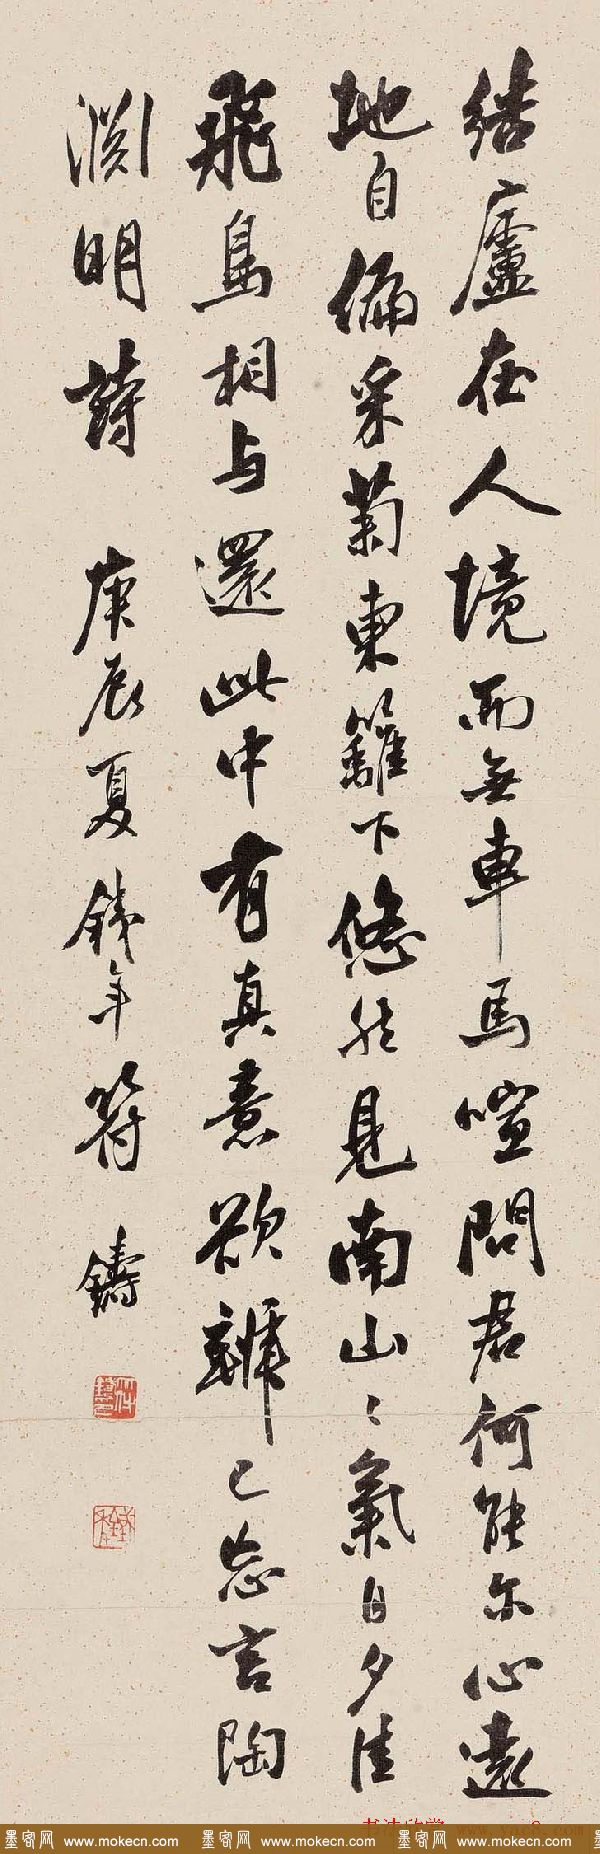 結廬在人境而無車馬喧問君何能尔心遠
地自偏采菊東籬下悠然見南山〻氣日夕佳
飛鳥相与還此中有真意欲辨已忘言陶
淵明詩 庚辰夏鐵年符鑄
符鑄
鐵年
书法欣赏
墨客网 www.mokecn.com 墨客网 www.mokecn.com 墨客网 www.mokecn.com